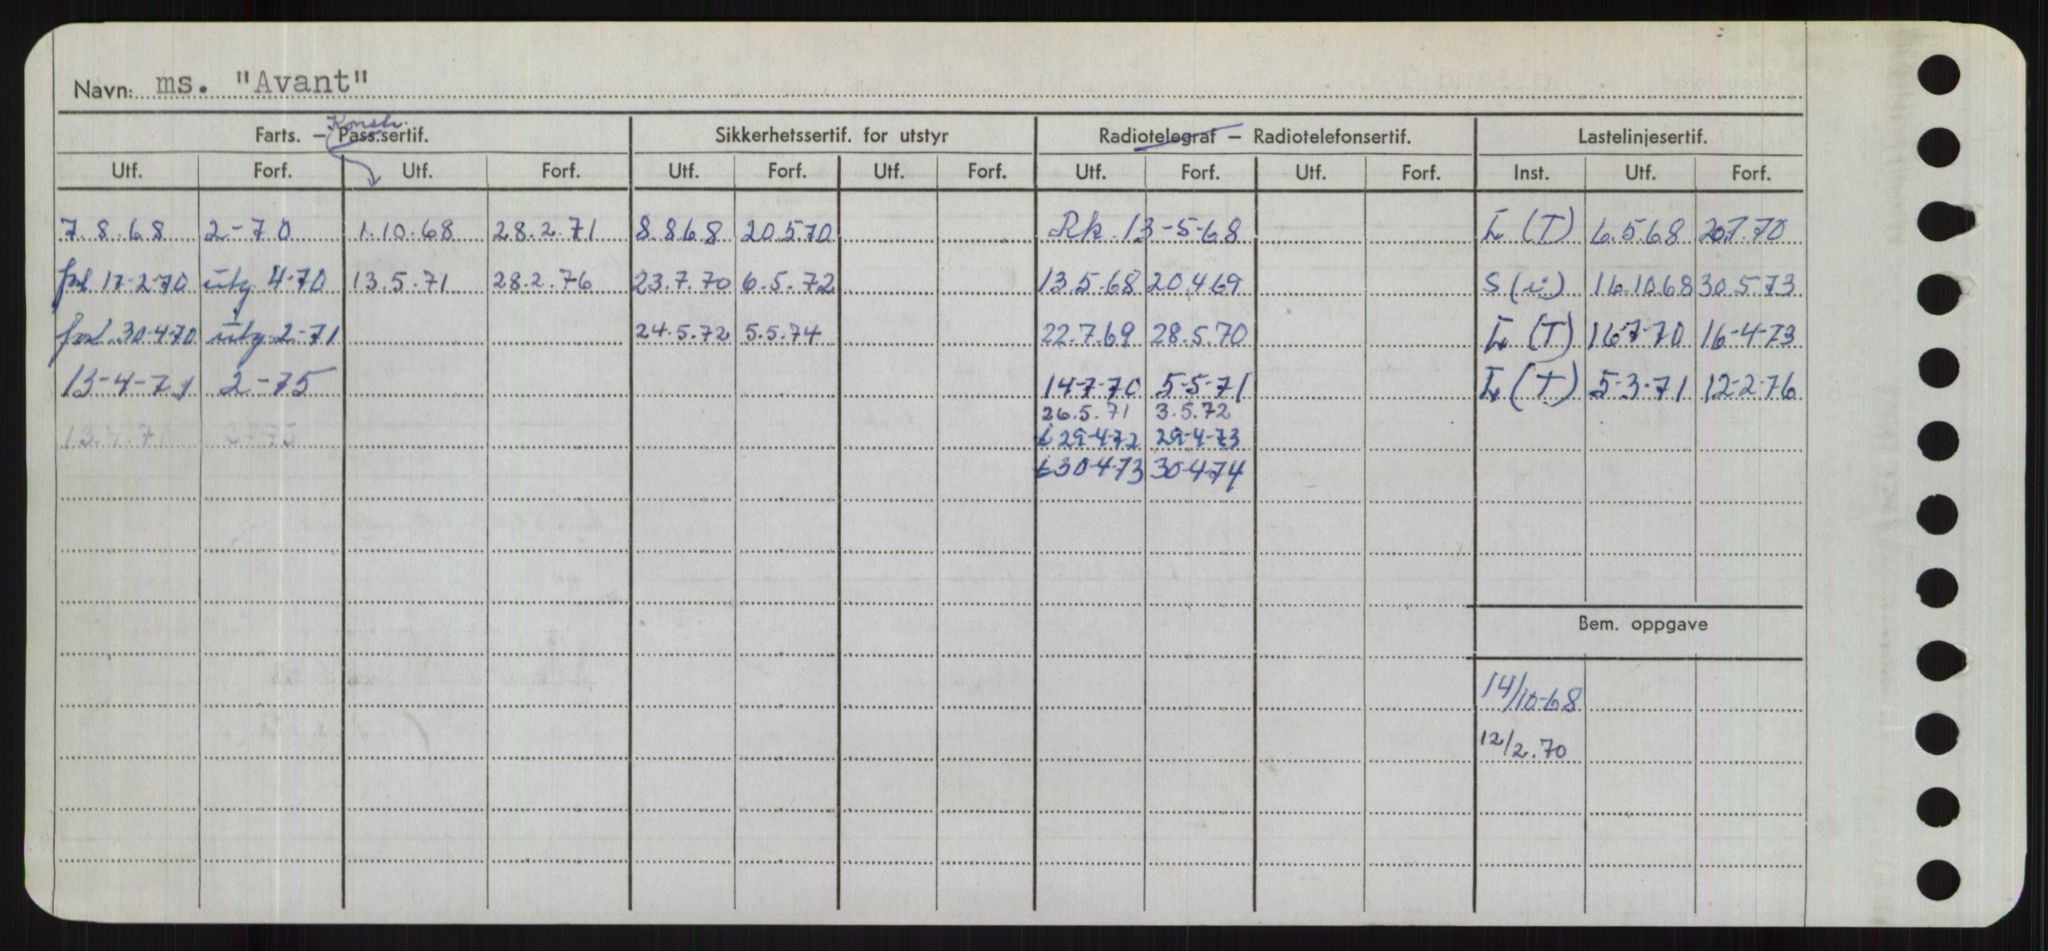 Navn: ms. "Avant"
Konstr.
Farts. — Pass.sertif. Sikkerhetssertif. for utstyr Radiotelegraf — Radiotelefonsertif. Lastelinjesertif.
Utf. Forf. Utf. Forf. Utf. Forf. Utf. Forf. Utf. Forf. Utf. Forf. Inst. Utf. Forf.
7.8.68 2-70 1.10.68 28.2.71 8.8.68 20.5.70 Rk 13-5-68 L (T) 6.5.68 20.7.70
forl. 17-2-70 utg. 4-70 13.5.71 28.2.76 23.7.70 6.5.72 13.5.68 20.4.69 S (i) 16.10.68 30.5.73
forl. 30-4-70 utg. 2-71 24.5.72 5.5.74 22.7.69 28.5.70 L (T) 16-7-70 16-4-73
13-4-71 2-75 14-7-70 5-5-71 L (T) 5-3-71 12-2-76
26.5.71 3.5.72
13.4.71 2-75 i 29-4-72 29-4-73
i 30-4-73 30-4-74
Bem. oppgave
14/10-68
12/2.70